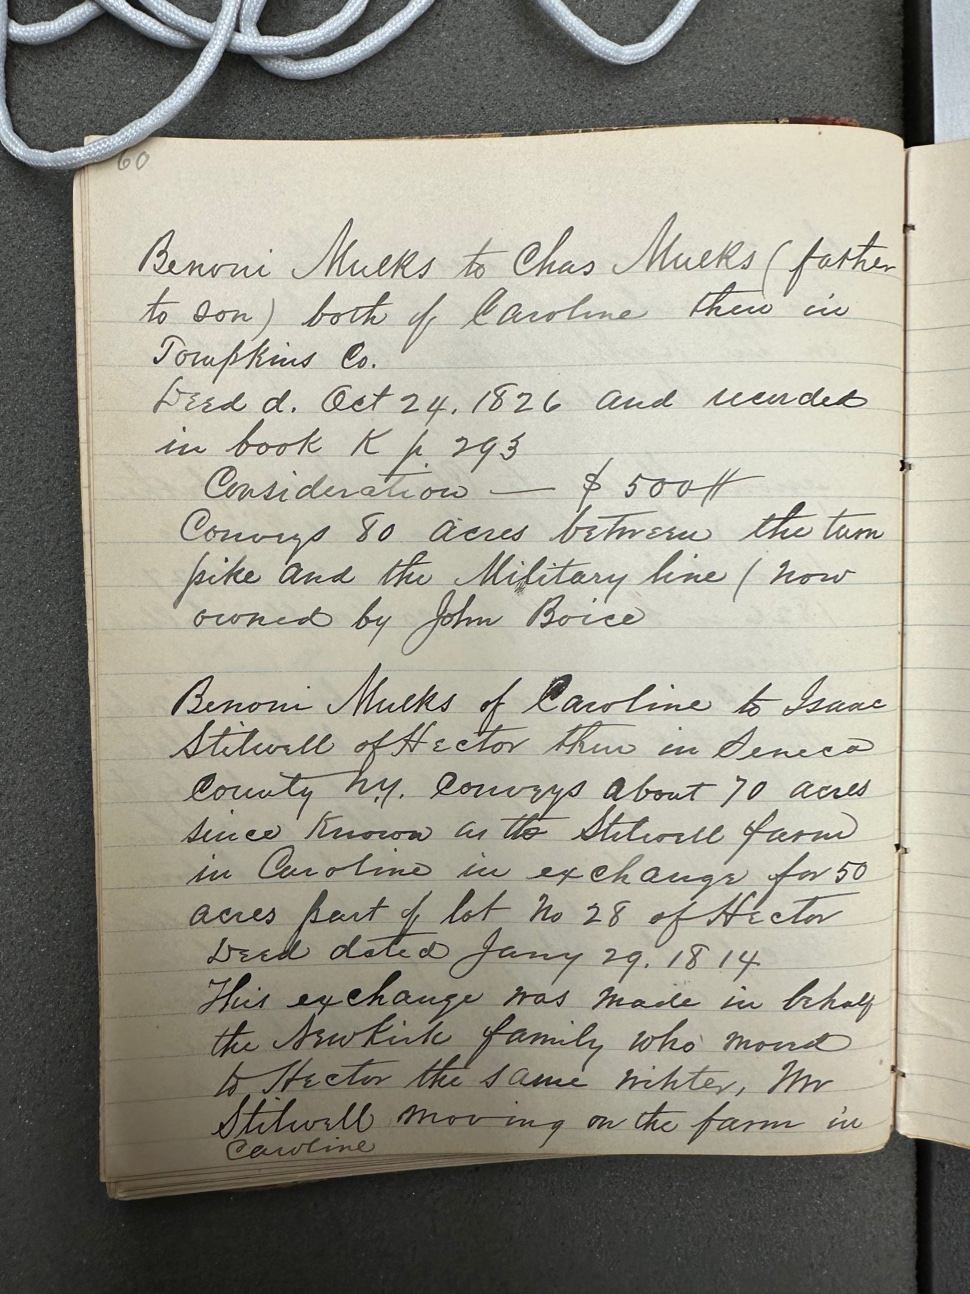 60
Benoni Mulks to Chas Mulks (father
to son) both of Caroline then in
Tompkins Co.
Deed d. Oct 24. 1826 and recorded
in book K p 293
Consideration — $ 500
Conveys 80 acres between the turn
pike and the Military line (now
owned by John Boice
Benoni Mulks of Caroline to Isaac
Stilwell of Hector then in Seneca
County N.Y. Conveys about 70 acres
since known as the Stilwell farm
in Caroline in exchange for 50
acres part of lot No 28 of Hector
Deed dated Jany 29. 1814
This exchange was made in behalf
the Newkirk family who moved
to Hector the same winter, Mr
Stilwell moving on the farm in
Caroline